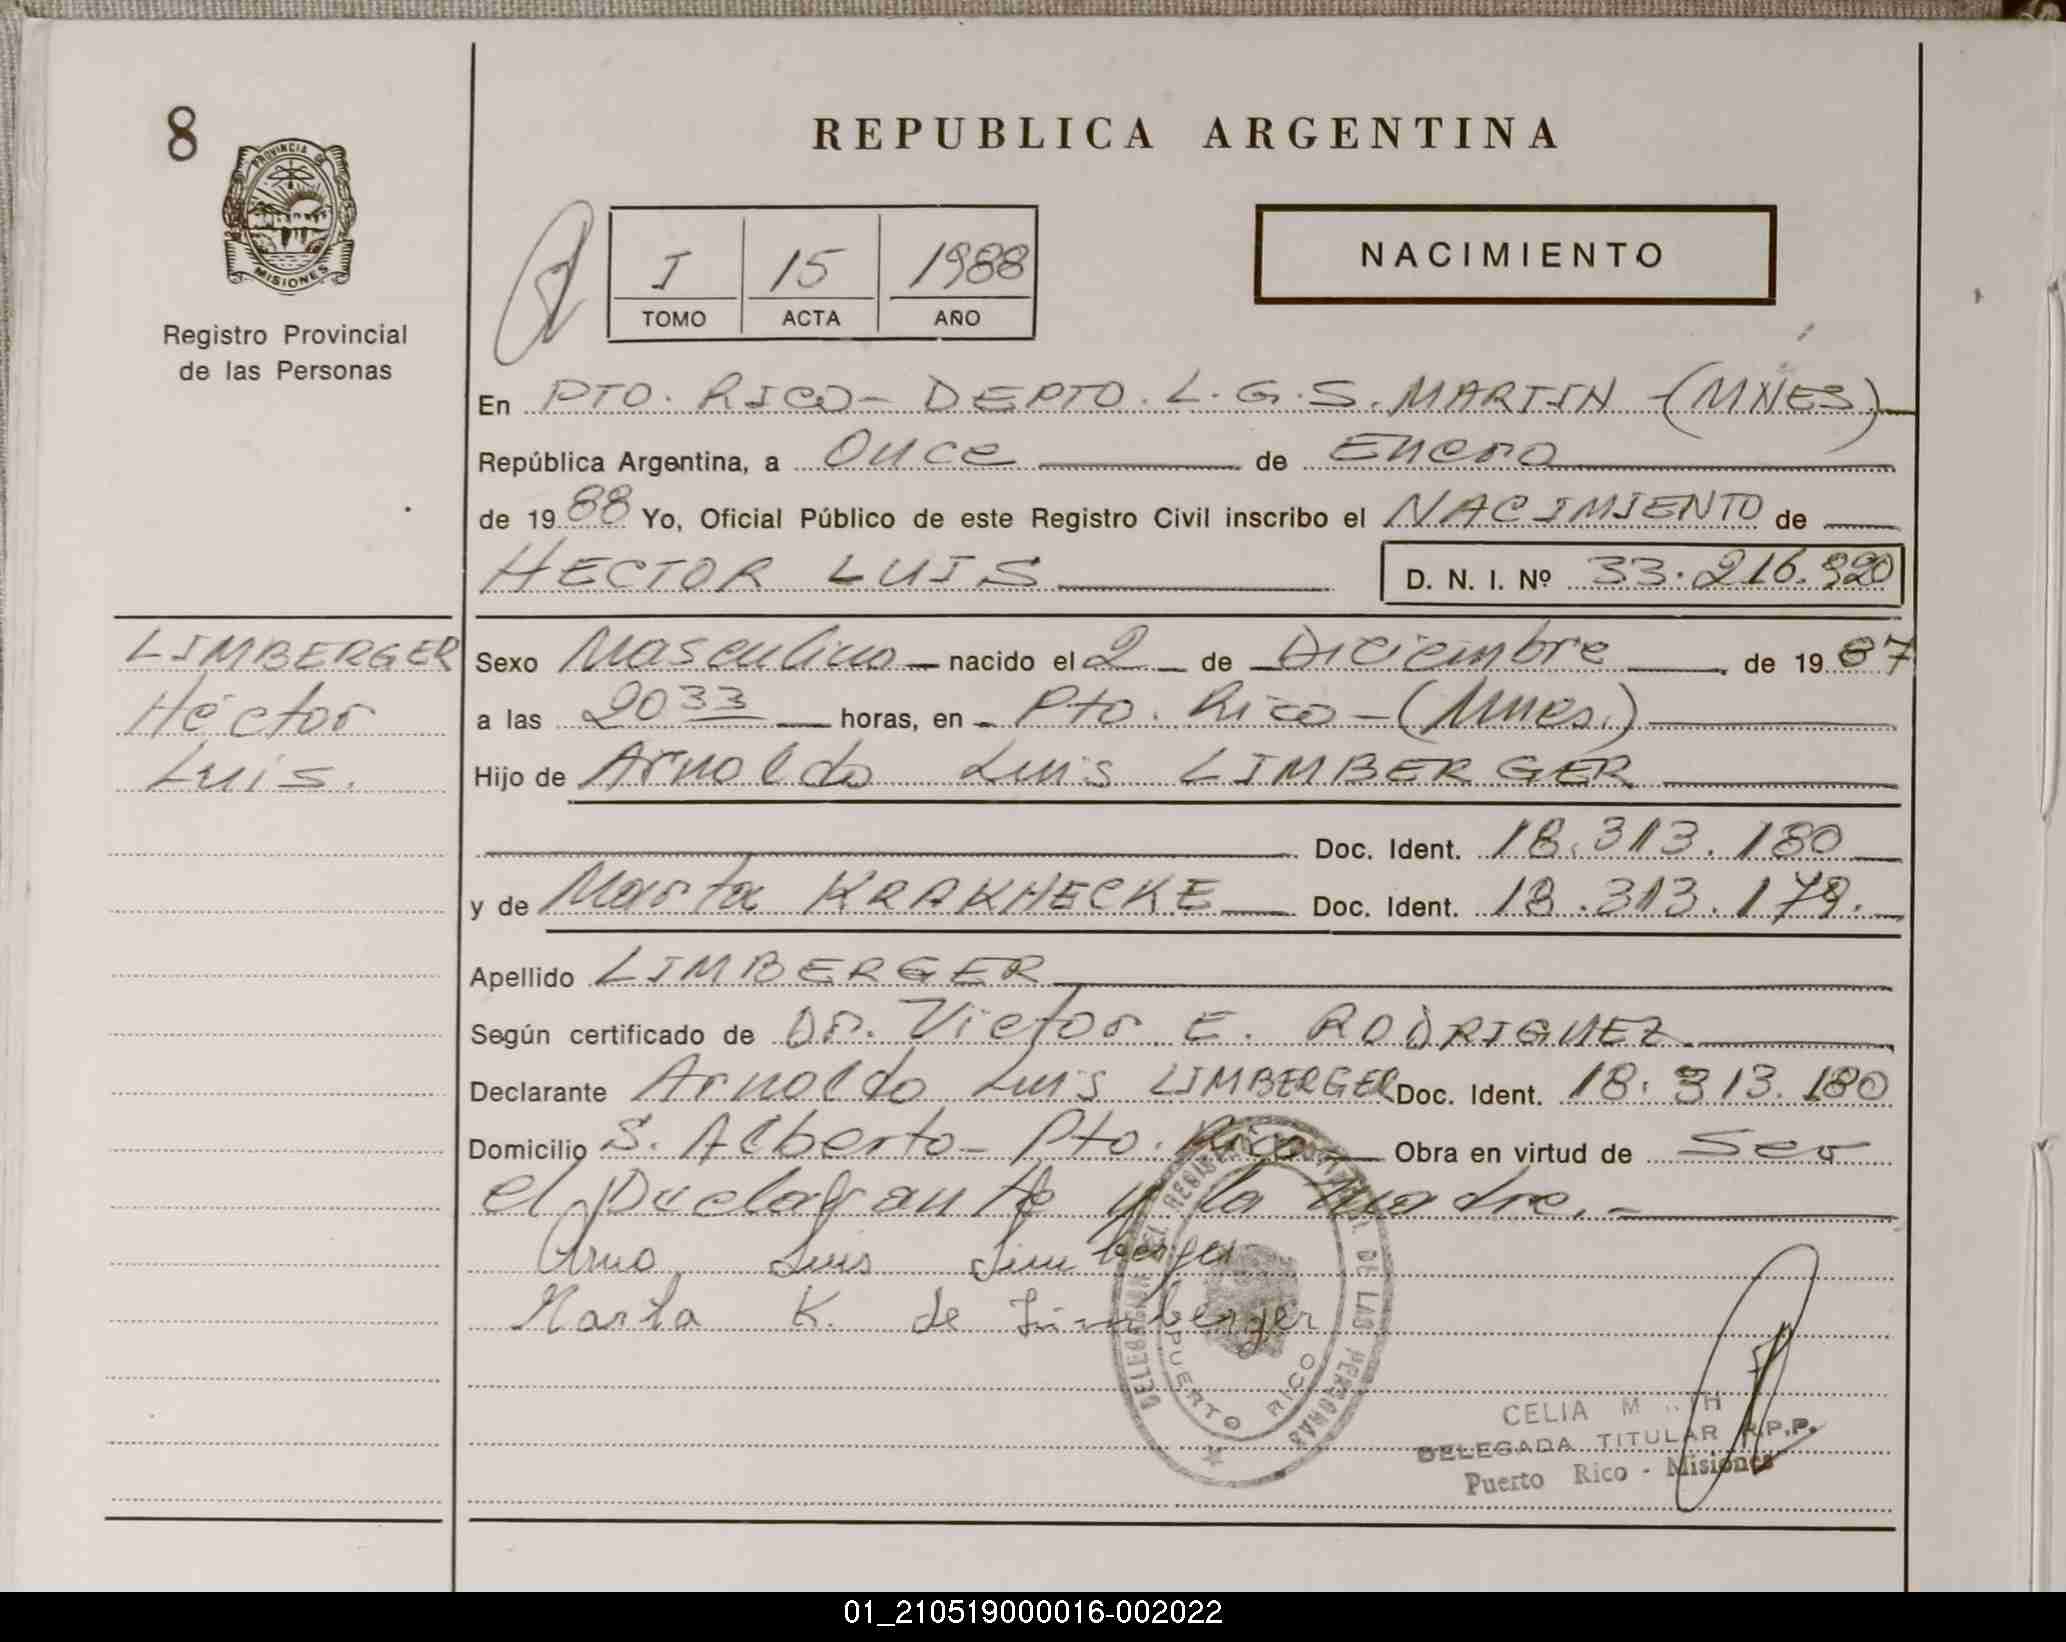 8
PROVINCIA DE
MISIONES
Registro Provincial
de las Personas
REPUBLICA ARGENTINA
I 15 1988
TOMO ACTA AÑO
NACIMIENTO
En PTO. RICO - DEPTO. L. G. S. MARTIN - (MNES)
República Argentina, a Once de Enero
de 1988 Yo, Oficial Público de este Registro Civil inscribo el NACIMIENTO de
HECTOR LUIS D. N. I. Nº 33.216.920
LIMBERGER
Héctor
Luis.
Sexo Masculino nacido el 2 de Diciembre de 1987
a las 20 33 horas, en Pto. Rico - (Mnes.)
Hijo de Arnoldo Luis LIMBERGER
Doc. Ident. 18.313.180
y de Marta KRAKHECKE Doc. Ident. 18.313.179.
Apellido LIMBERGER
Según certificado de Dr. Victor E. RODRIGUEZ
Declarante Arnoldo Luis LIMBERGER Doc. Ident. 18.313.180
Domicilio S. Alberto - Pto. Rico Obra en virtud de ser
el Declarante y la madre. -
Arno Luis Limberger
Marta K. de Limberger
DELEGACION DEL REGISTRO PROVINCIAL DE LAS PERSONAS
PUERTO RICO
CELIA
DELEGADA TITULAR R.P.P.
Puerto Rico - Misiones
01_210519000016-002022